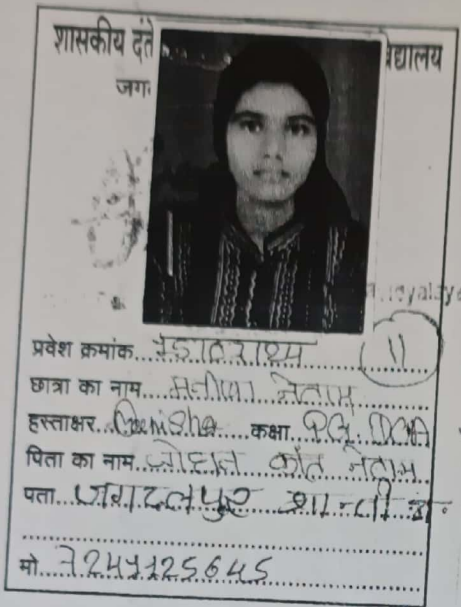 शासकीय दंते द्यालय
जग
प्रवेश क्रमांक 11
छात्रा का नाम मनीषा नेताम
हस्ताक्षर Manisha कक्षा P.G. DCA
पिता का नाम नेताम
पता जगदलपुर
मो. 7241125645